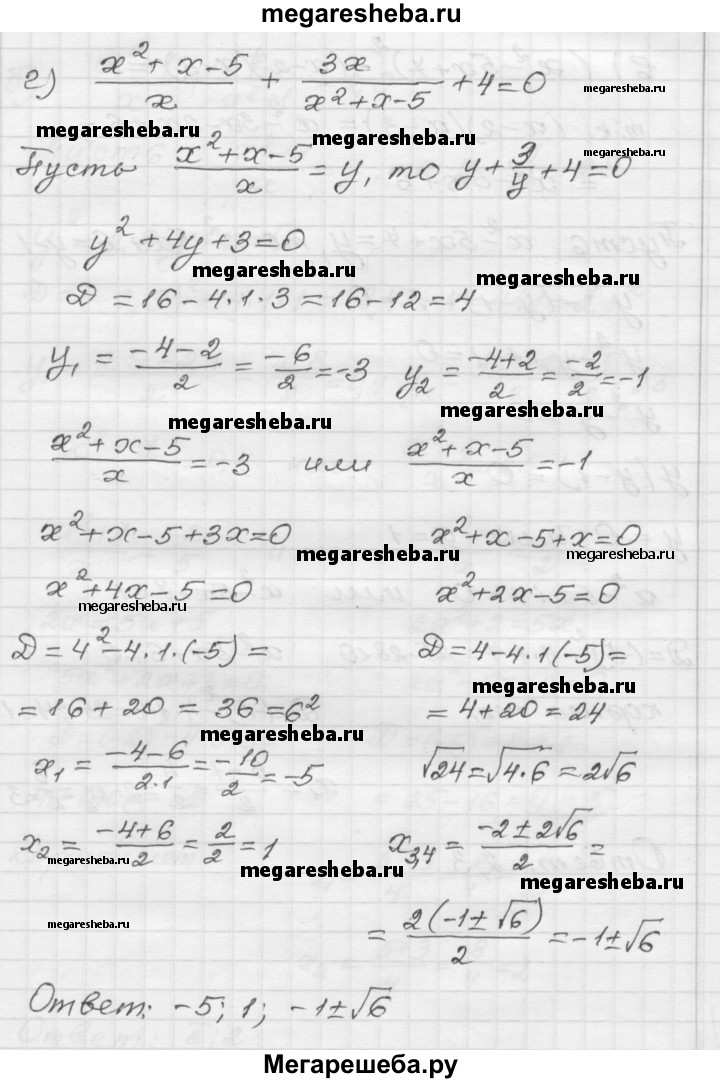 megaresheba.ru
г) (x²+x-5)/x + 3x/(x²+x-5) + 4=0
megaresheba.ru
megaresheba.ru megaresheba.ru megaresheba.ru
Пусть (x²+x-5)/x = y, то y + 3/y + 4=0
y²+4y+3=0
megaresheba.ru megaresheba.ru
Д = 16-4·1·3 = 16-12 = 4
y₁ = (-4-2)/2 = -6/2 = -3 y₂ = (-4+2)/2 = -2/2 = -1
megaresheba.ru megaresheba.ru
(x²+x-5)/x = -3 или (x²+x-5)/x = -1
x²+x-5+3x=0 x²+x-5+x=0
megaresheba.ru megaresheba.ru
x²+4x-5=0 x²+2x-5=0
megaresheba.ru
Д = 4²-4·1·(-5) = Д = 4-4·1(-5) =
megaresheba.ru
= 16+20 = 36 = 6² = 4+20 = 24
megaresheba.ru
x₁ = (-4-6)/(2·1) = -10/2 = -5 √24 = √(4·6) = 2√6
x₂ = (-4+6)/2 = 2/2 = 1 x₃,₄ = (-2±2√6)/2 =
megaresheba.ru megaresheba.ru megaresheba.ru
megaresheba.ru
= 2(-1±√6)/2 = -1±√6
Ответ: -5; 1; -1±√6
Мегарешеба.ру